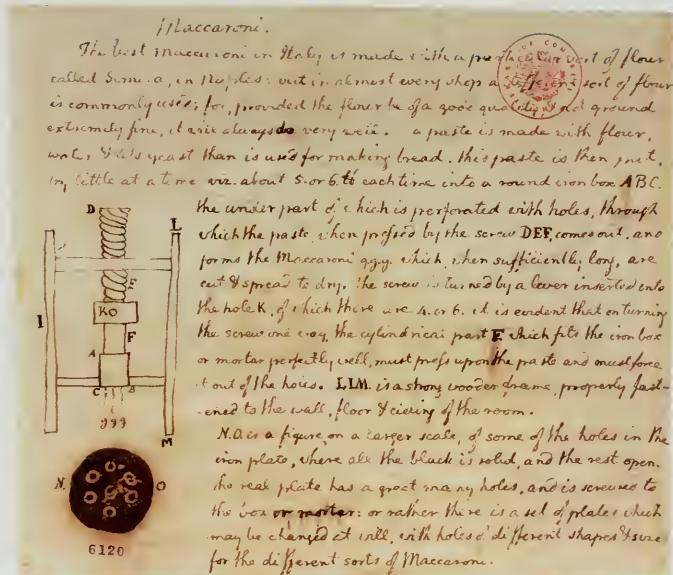 Maccaroni.
The best maccaroni in Italy is made with a particular sort of flour
called Semola, in Naples: but in almost every shop a different sort of flour
is commonly used; for, provided the flour be of a good quality, & not ground
extremely fine, it will always do very well. a paste is made with flour,
water & less yeast than is used for making bread. this paste is then put,
by little at a time viz. about 5. or 6. ℔ each time into a round iron box ABC.
the under part of which is perforated with holes, through
which the paste, when pressed by the screw DEF, comes out, and
forms the Maccaroni g.g.g. which, when sufficiently long, are
cut & spread to dry. the screw is turned by a lever inserted into
the hole K, of which there are 4. or 6. it is evident that on turning
the screw one way, the cylindrical part F. which fits the iron box
or mortar perfectly well, must press upon the paste and must force
it out of the holes. LLM. is a strong wooden frame, properly fast-
ened to the wall, floor & cieling of the room.
N.O. is a figure, on a larger scale, of some of the holes in the
iron plate, where all the black is solid, and the rest open.
the real plate has a great many holes, and is screwed to
the box or mortar: or rather there is a set of plates which
may be changed at will, with holes of different shapes & sizes
for the different sorts of Maccaroni.
D
L
I
E
K
F
A
C
B
ggg
M
N.
O
6120